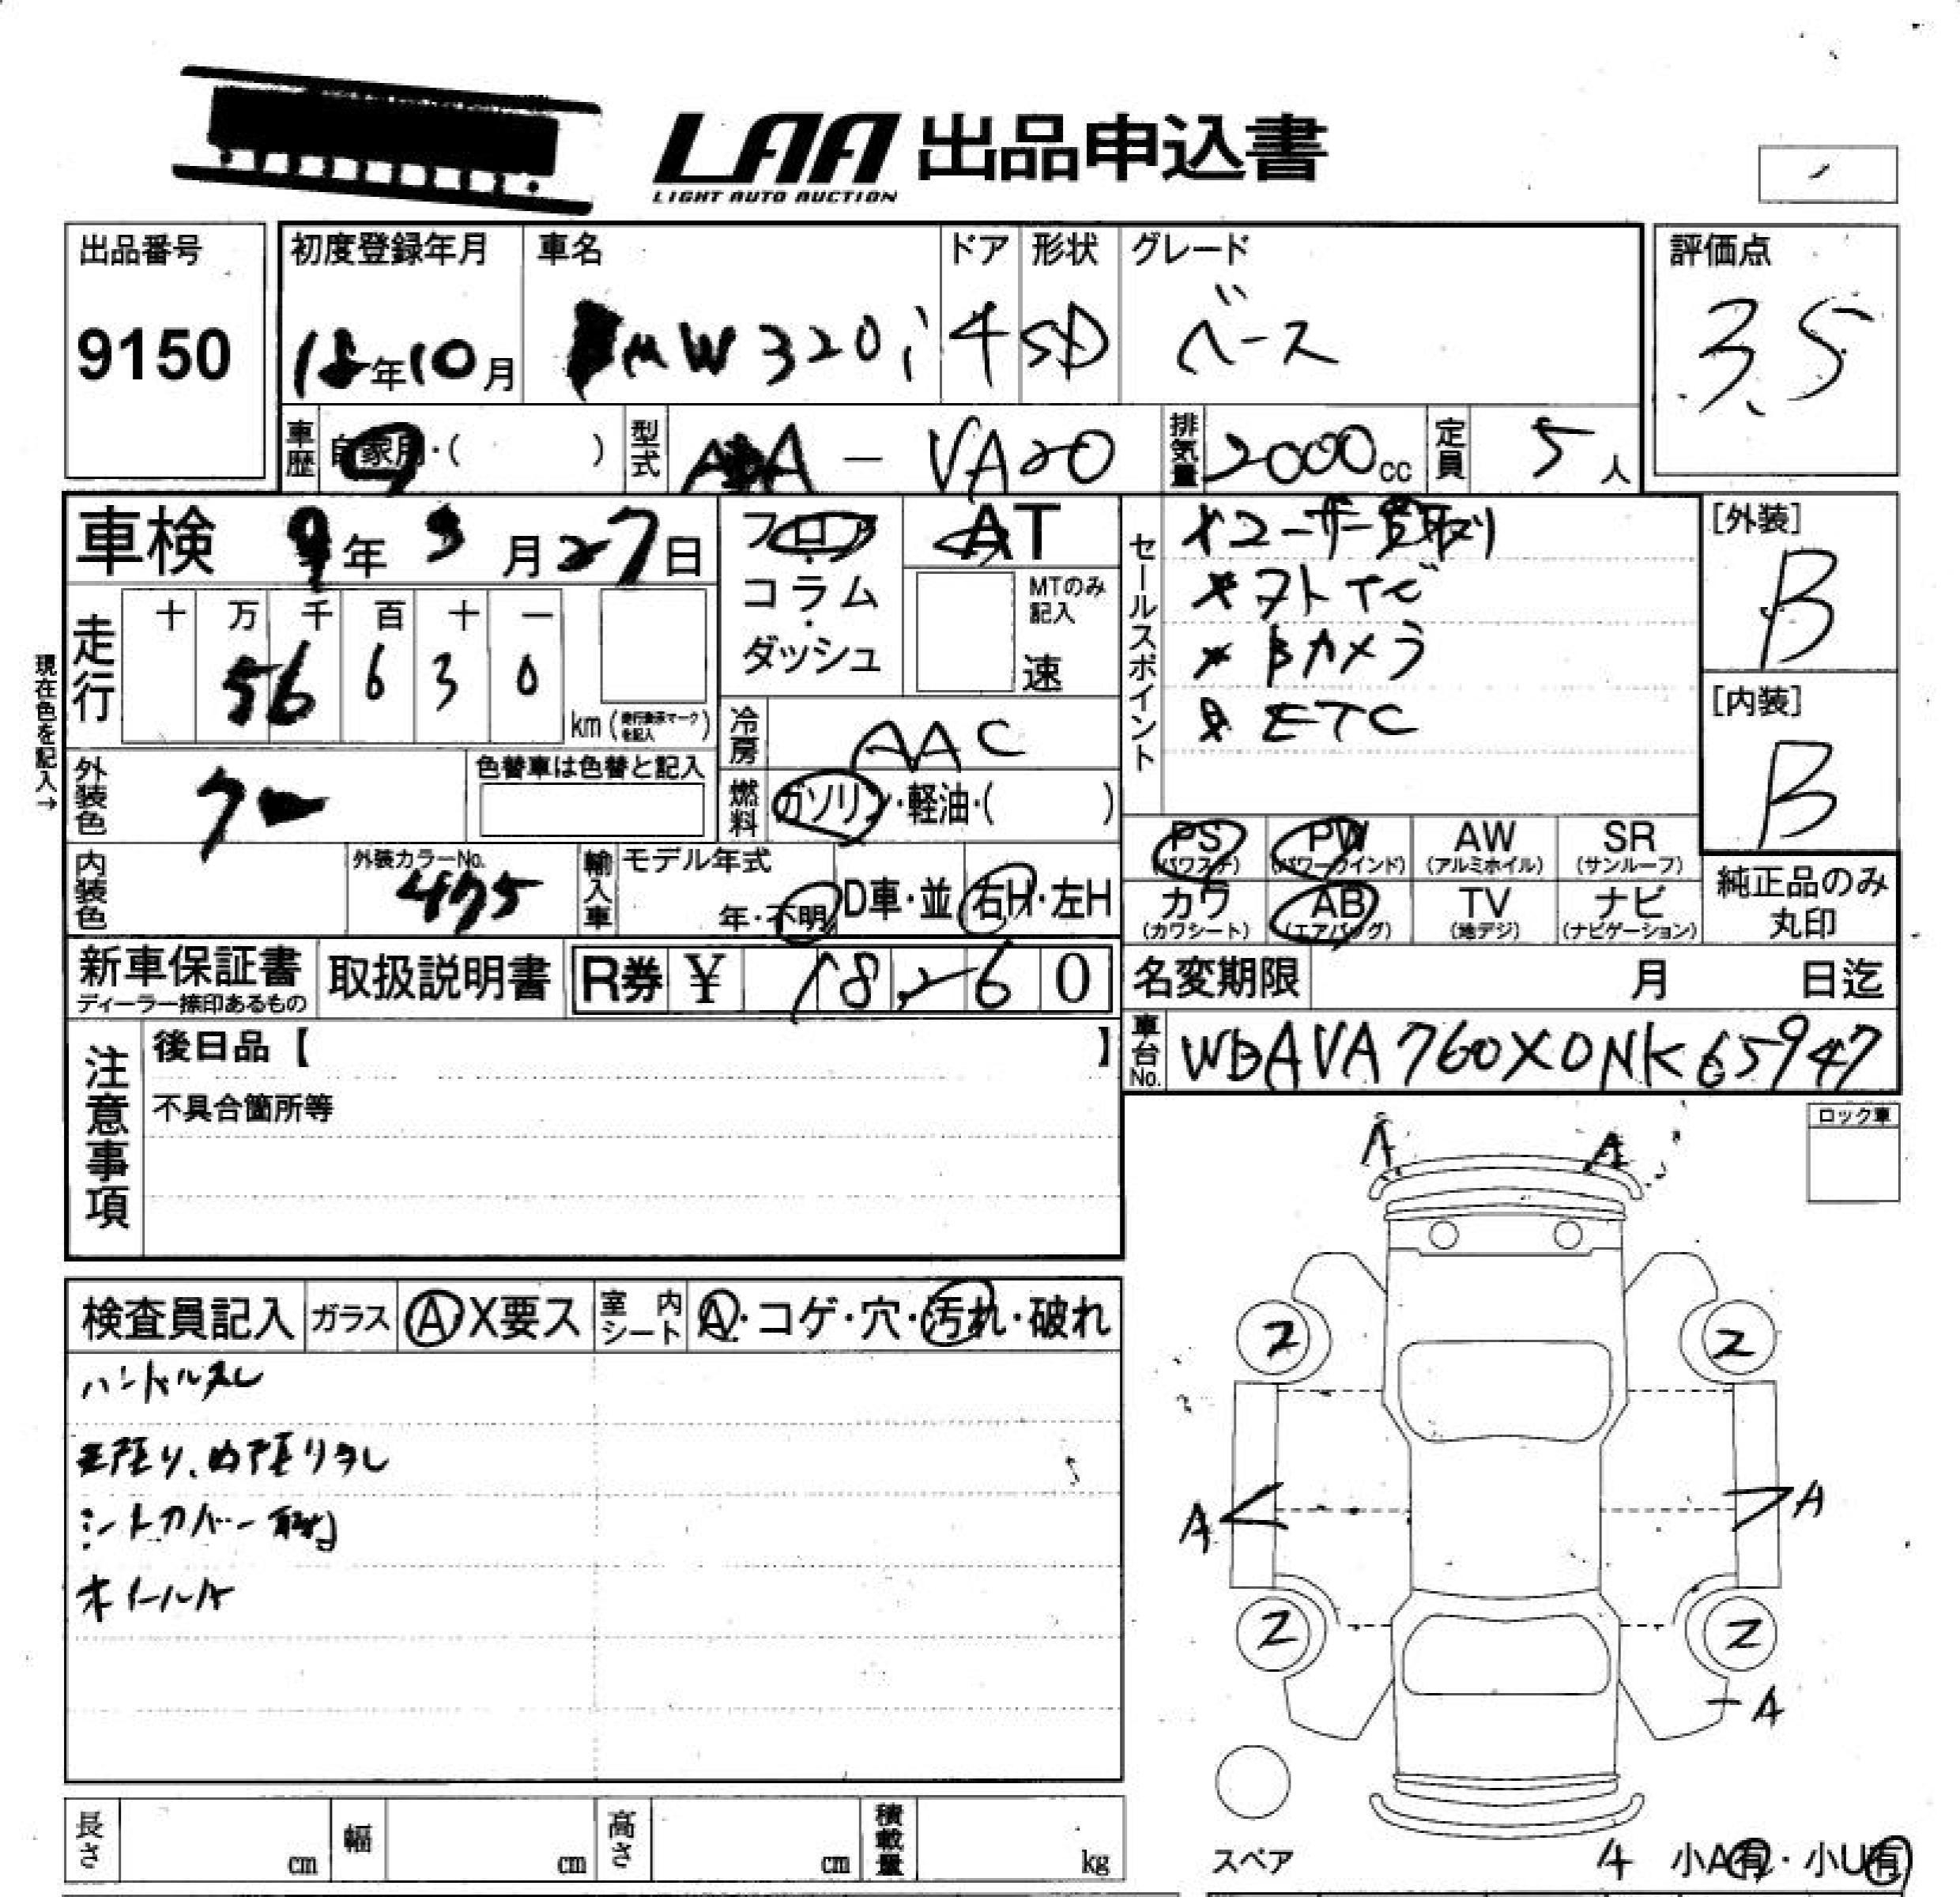 LAA 出品申込書
LIGHT AUTO AUCTION
出品番号
9150
初度登録年月
18年10月
車名
BMW320i
ドア
4
形状
SD
グレード
ベース
評価点
3.5
車歴 自家用・( )
型式 ABA-VA20
排気量 2000cc
定員 5人
車検 9年3月27日
フロア・コラム・ダッシュ
AT
MTのみ記入
速
走行
十 万 千 百 十 一
5 6 6 3 0
km(走行表示マークを記入)
現在色を記入→
冷房 AAC
外装色
色替車は色替と記入
燃料 ガソリン・軽油・( )
内装色
外装カラーNo.
475
輸入車
モデル年式
年・不明
D車・並
右H・左H
セールスポイント
ユーザー買取り
フルTV
Bカメラ
ETC
[外装]
B
[内装]
B
PS (パワステ)
PW (パワーウインド)
AW (アルミホイル)
SR (サンルーフ)
カワ (カワシート)
AB (エアバッグ)
TV (地デジ)
ナビ (ナビゲーション)
純正品のみ丸印
新車保証書
ディーラー捺印あるもの
取扱説明書
R券 ¥ 18,260
名変期限 月 日迄
車台No. WBAVA760X0NK65947
注意事項
後日品【 】
不具合箇所等
ロック車
検査員記入
ガラス A・X要ス
室内シート A・コゲ・穴・汚れ・破れ
ハンドルスレ
シートカバー
ホイールA
A A
2 2
A A
2 2
A
スペア
4 小A有・小U有
長さ cm
幅 cm
高さ cm
積載量 kg